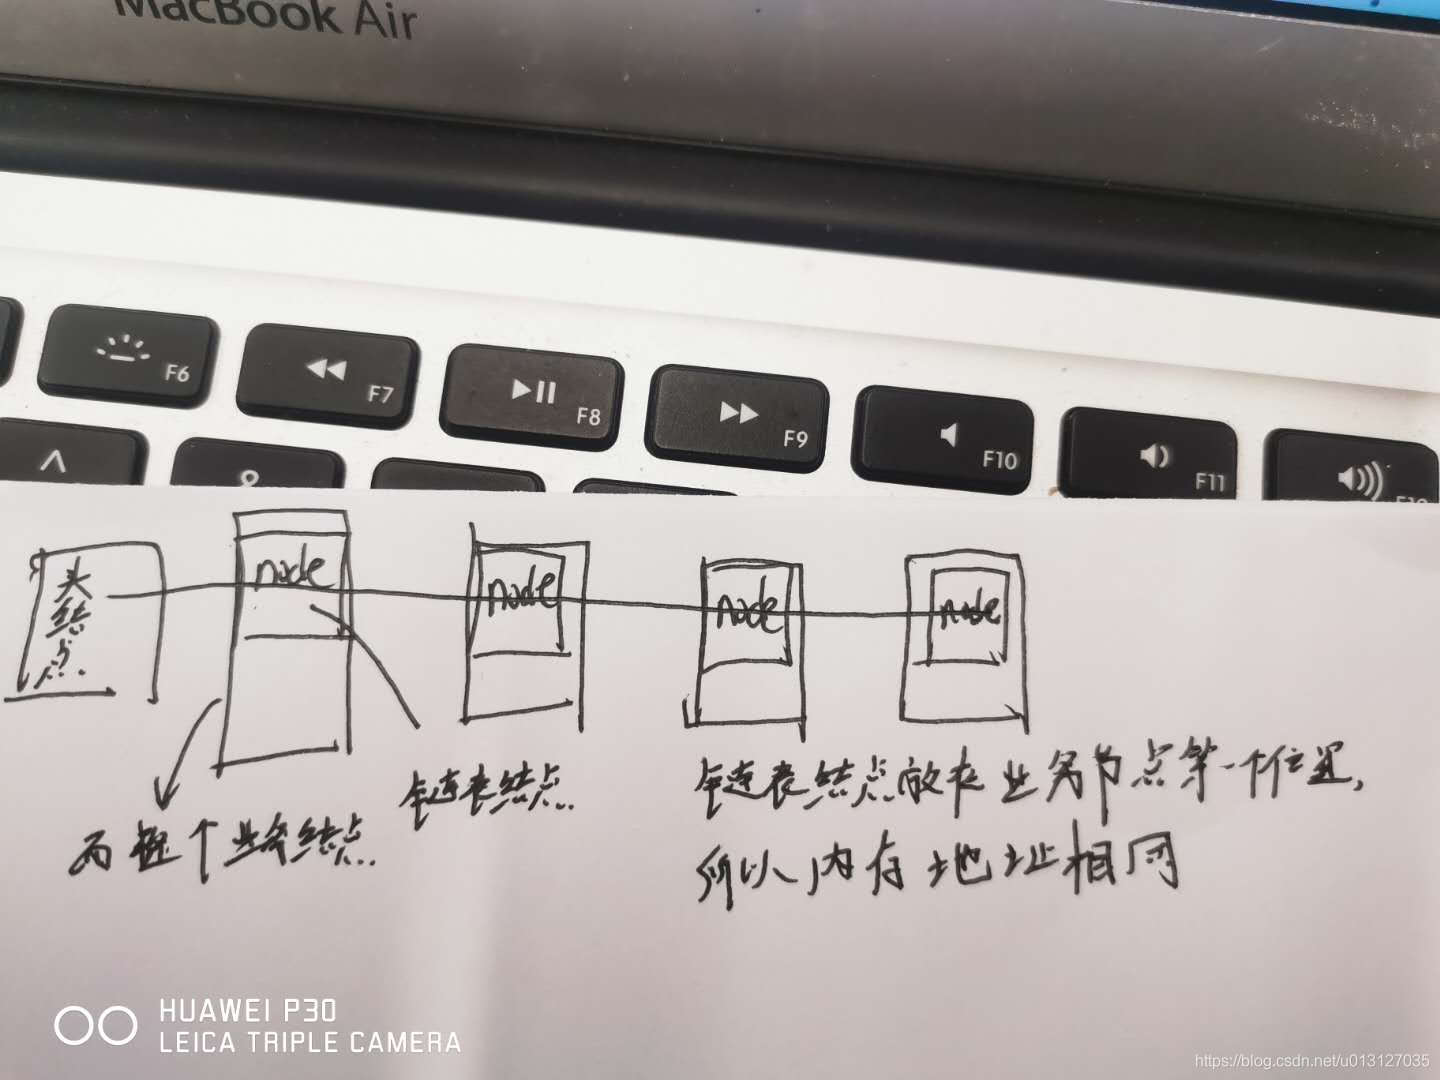 MacBook Air
F6
F7
F8
F9
F10
F11
F12
头结点.
node
node
node
node
而整个业务结点.
链表结点.
链表结点放在业务节点第一个位置,
所以内存地址相同
HUAWEI P30
LEICA TRIPLE CAMERA
https://blog.csdn.net/u013127035